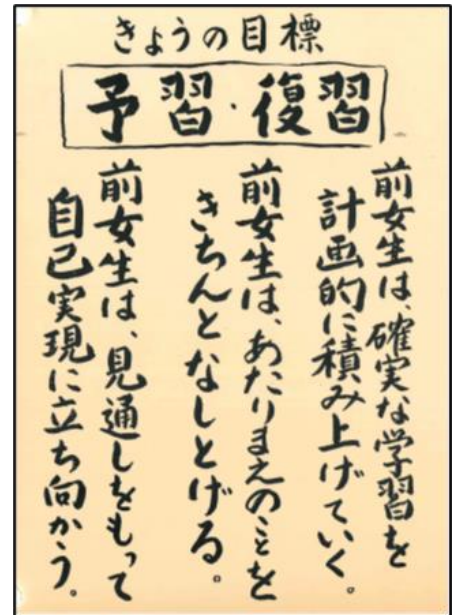 きょうの目標
予習・復習
前女生は、確実な学習を
計画的に積み上げていく。
前女生は、あたりまえのことを
きちんとなしとげる。
前女生は、見通しをもって
自己実現に立ち向かう。